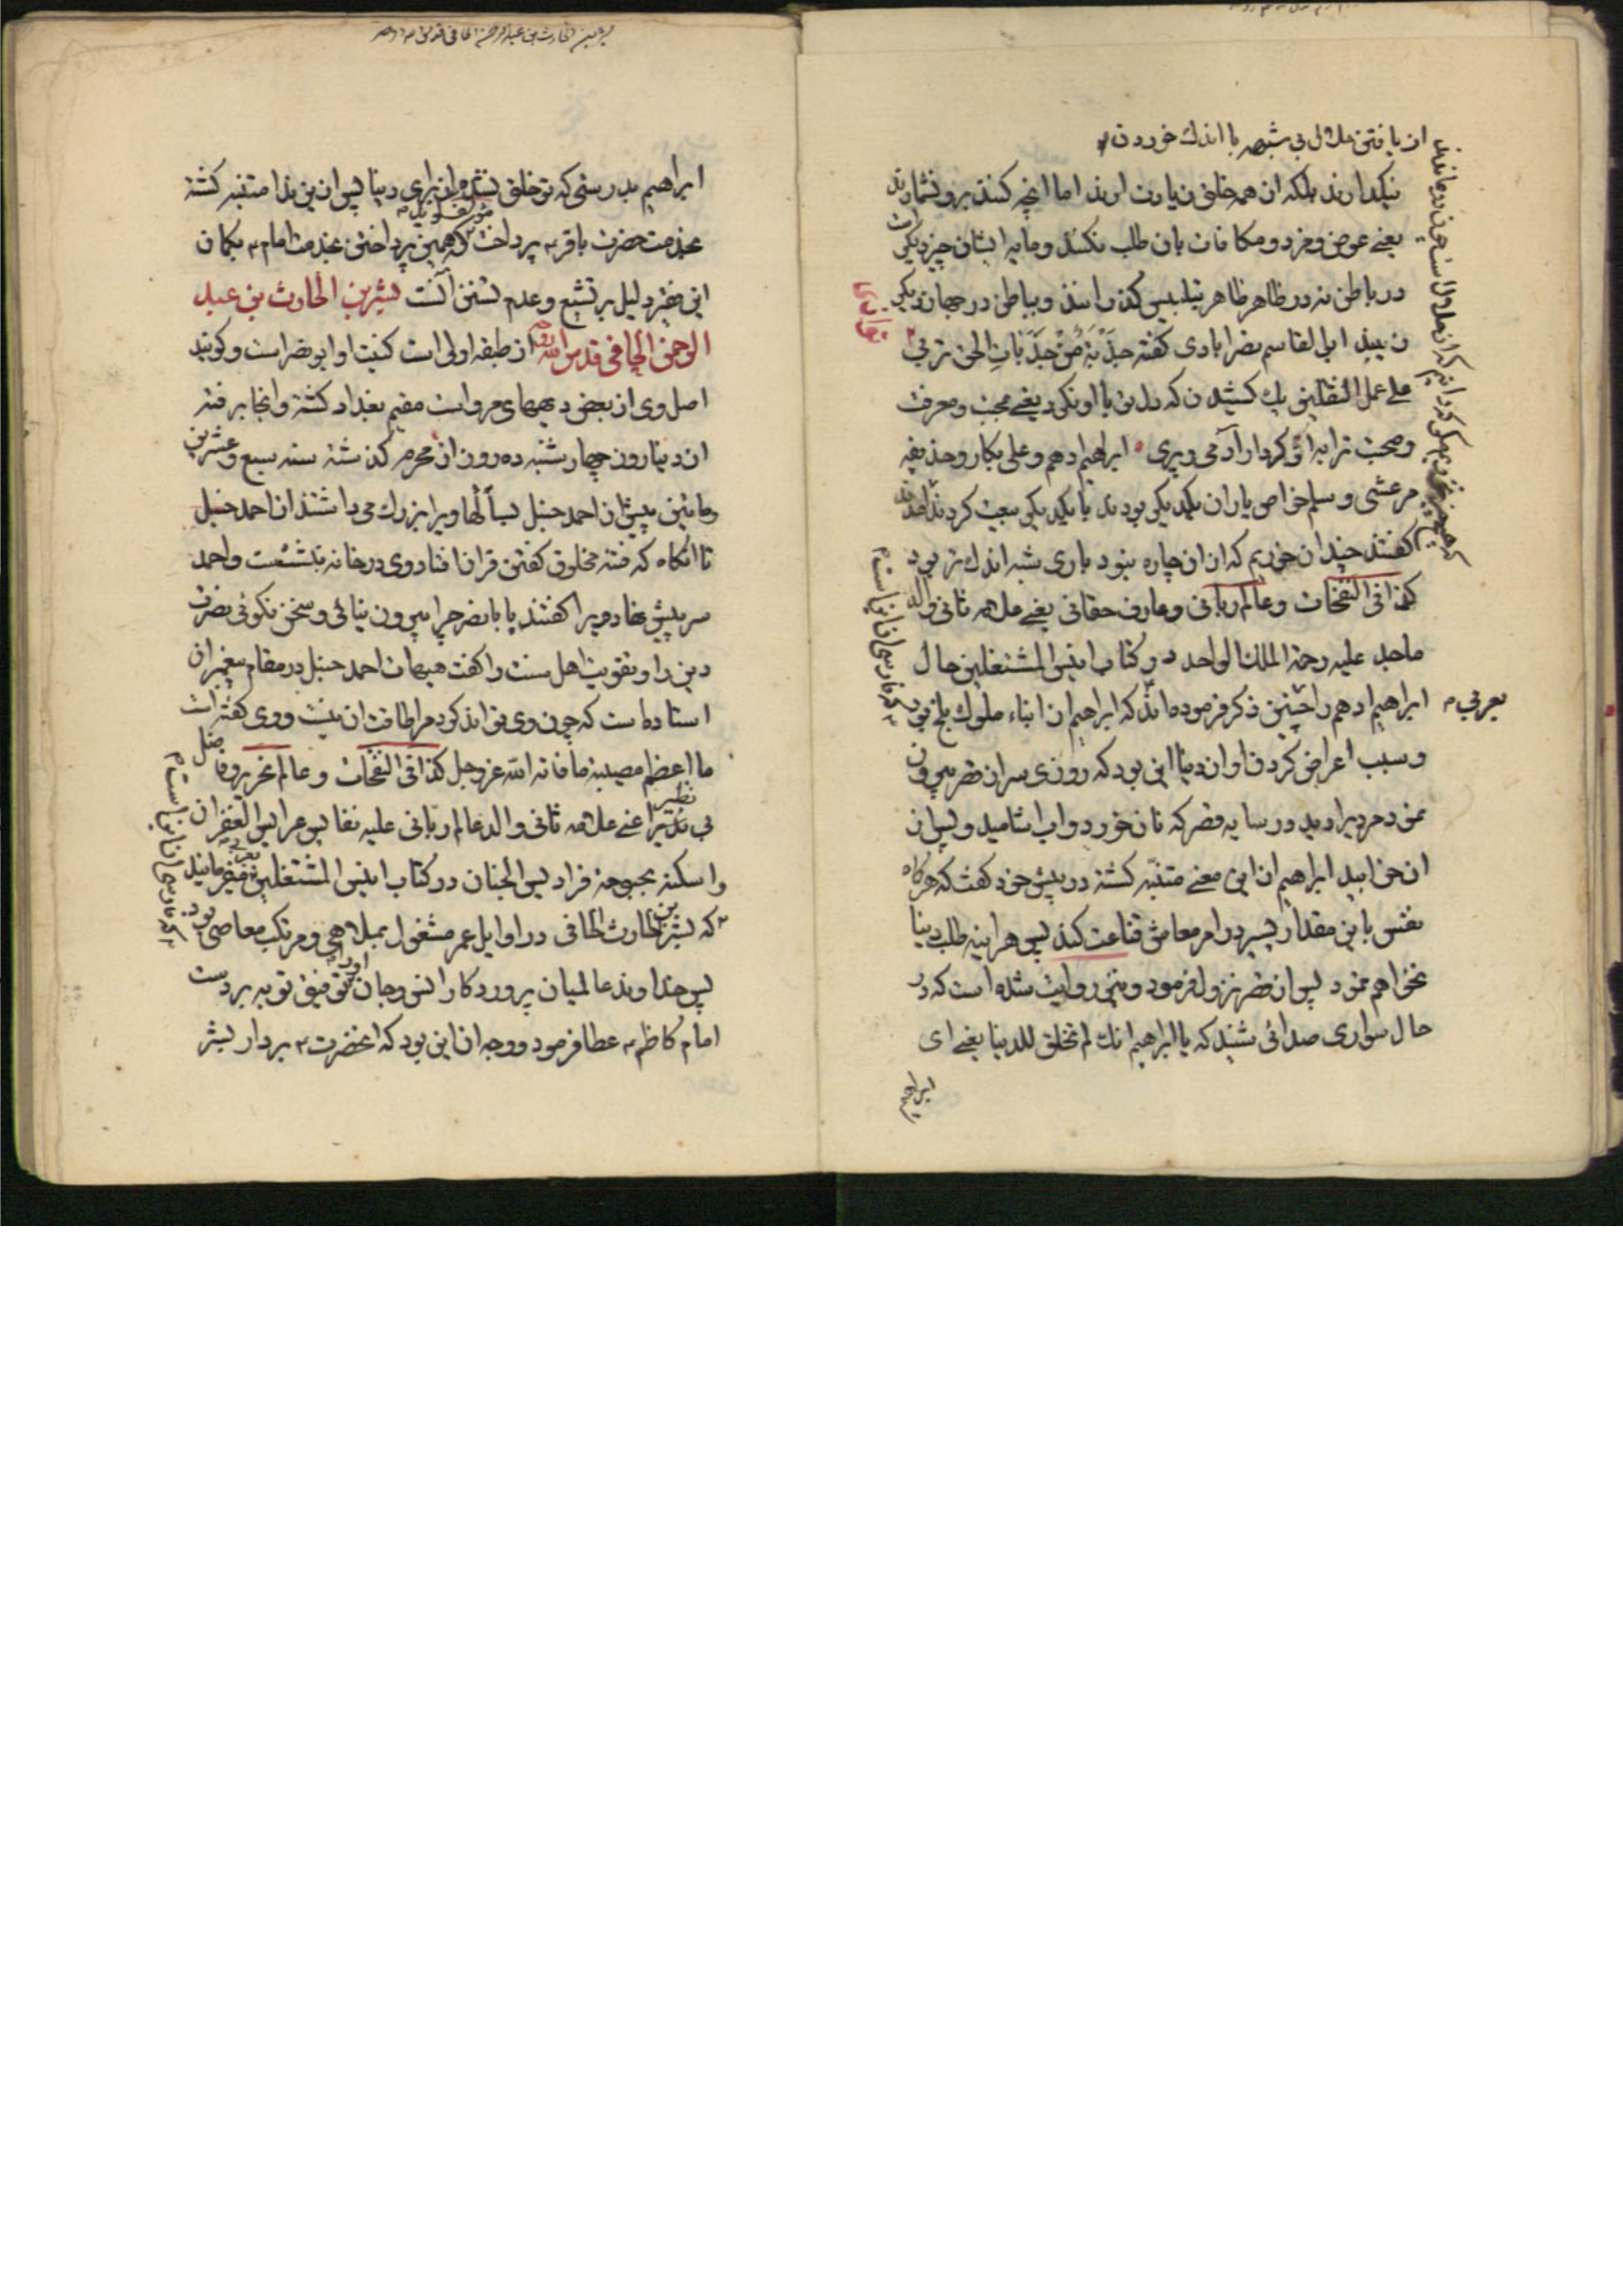 از یافتن حلال بی شبهه با اندك خوردن
نیکدارند بلکه از همه خلق زیارت ارند اما انچه کنند برو نشمارند
یعنی عوض و مزد و مکافات بان طلب نکنند و مایه ایشان چیز دیکر است
در باطن نه در ظاهر ظاهر بتلبیس کذرانند و بباطن در جهان دیکر
زیند ابی القاسم نصرابادی کفته جَذْبَةٌ مِنْ جَذَبَاتِ الحق تربی
علی عمل الثقلین یك کشیدن که دلت با او نکرد یعنی محبت و معرفت
و صحبت ترا به از کردار ادمی و پری ابراهیم ادهم و علی بکار و حذیفه
مرعشی و سلم خواص یاران یکدیکر بودند با یکدیکر بیعت کردند
کفتند چندان خوریم که از ان چاره نبود باری شبه اندك تر بود
کذا فی النفحات و عالم ربانی و عارف حقانی یعنی علامه ثانی والد
ماجد علیه رحمة الملك الواحد در کتاب انیس المشتغلین حال
ابراهیم ادهم را چنین ذکر فرموده اند که ابراهیم از ابناء ملوك بلخ بود
بعربی
و سبب اعراض کردن او از دنیا این بود که روزی سر از قصر بیرون
نمود مردیرا دید در سایه قصر که نان خورد و اب اشامید و پس از
ان خوابید ابراهیم از این معنی متنبه کشته در پیش خود کفت که هرکاه
نفس باین مقدار پس در امر معاش قناعت کند پس هراینه طلب دنیا
نخواهم نمود پس از قصر نزول فرمود و نیز روایت شده است که در
حال سواری صدائی شنید که یا ابراهیم انك لم تخلق للدنیا یعنی ای
ابراهیم
بشر بن الحارث بن عبد الرحمن الحافی قدس سره
ابراهیم بدرستی که تو خلق نشده از برای دنیا پس از این ندا متنبه کشته
بخدمت حضرت باقر پرداخت که همین پرداختن بخدمت امام بکمان
این فقیر دلیل بر تشیع و عدم تسنن آنست بشر بن الحارث بن عبد
الرحمن الحافی قدس الله روحه از طبقه اولی است کنیت او ابو نصر است و کویند
اصل وی از بعض دیههای مرو است مقیم بغداد کشته و انجا برفته
از دنیا روز چهارشنبه ده روز از محرم کذشته سنه سبع و عشرین
و مائتین پیش از احمد حنبل بسالها ویرا بزرك می داشتند از احمد حنبل
تا انکاه که فتنه مخلوق کفتن قران افتاد وی در خانه بنشست و احمد
سر پیش نهاد ویرا کفتند یا با نصر چرا بیرون نیائی و سخن نکوئی نصرت
دین را و تقویت اهل سنت را کفت هیهات احمد حنبل در مقام پیغمبران
استاده است که چون وی تواند کرد مرا طاقت ان نیست و وی کفته است
ما اعظم مصیبة ما فاته الله عز وجل کذا فی النفحات و عالم نحریر و فاضل
بی نظیر اعنی علامه ثانی والد عالم ربانی علیه نفایس عرایس الغفران
و اسکنه بحبوحة فرادیس الجنان در کتاب انیس المشتغلین میفرمایند
که بشر بن الحارث الحافی در اوایل عمر مشغول بملاهی و مرتکب معاصی بود
پس خداوند عالمیان پروردکار انس و جان او را توفیق توبه بر دست
امام کاظم عطا فرمود و وجه ان این بود که انحضرت بر دار بشر